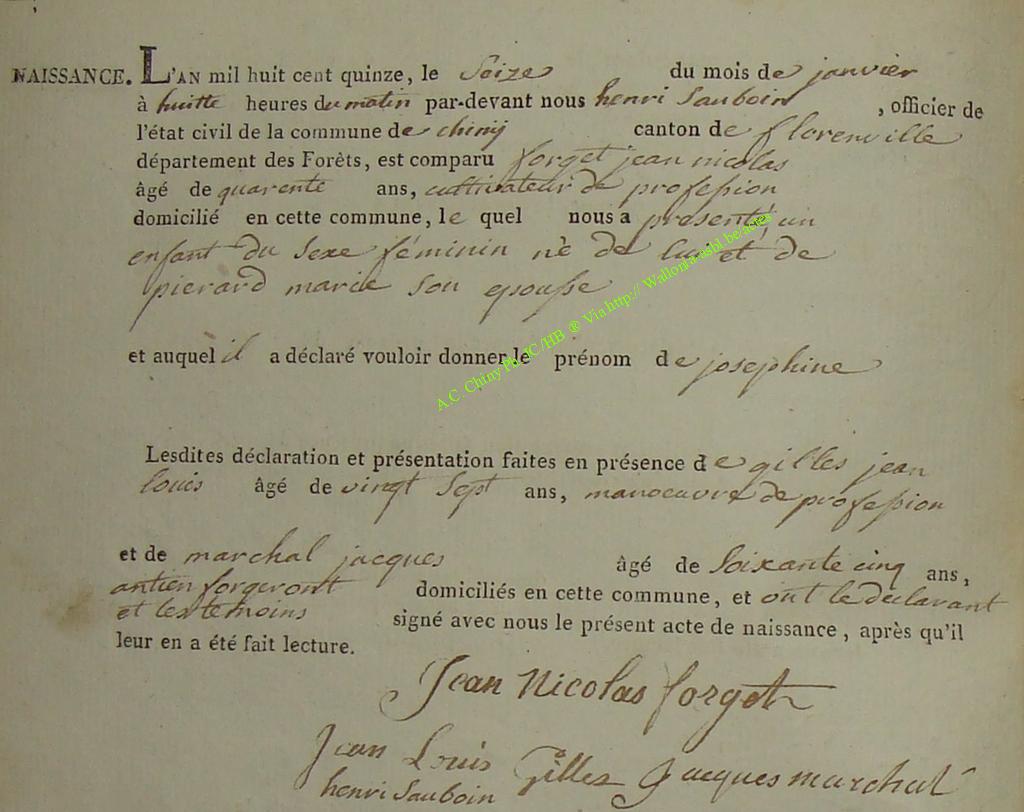 NAISSANCE. L'AN mil huit cent quinze, le Seize du mois de janvier
à huitte heures du matin par-devant nous henri Sauboin, officier de
l'état civil de la commune de chinij canton de florenville
département des Forêts, est comparu forget jean nicolas
âgé de quarente ans, cultivateur de profession
domicilié en cette commune, le quel nous a presenté un
enfant du sexe féminin né de lui et de
pierard marie son epousse
et auquel il a déclaré vouloir donner le prénom de josephine
A.C. Chiny Ph. JC/HB ® Via http:// Wallonia-asbl.be/actes
Lesdites déclaration et présentation faites en présence de gilles jean
louis âgé de vingt Sept ans, manoeuvre de profession
et de marchal jacques âgé de Soixante cinq ans,
antien forgeront domiciliés en cette commune, et ont le declarant
et les temoins signé avec nous le présent acte de naissance, après qu'il
leur en a été fait lecture.
Jean Nicolas forget
Jean Louis Gilles Jacques marchal
henri Sauboin